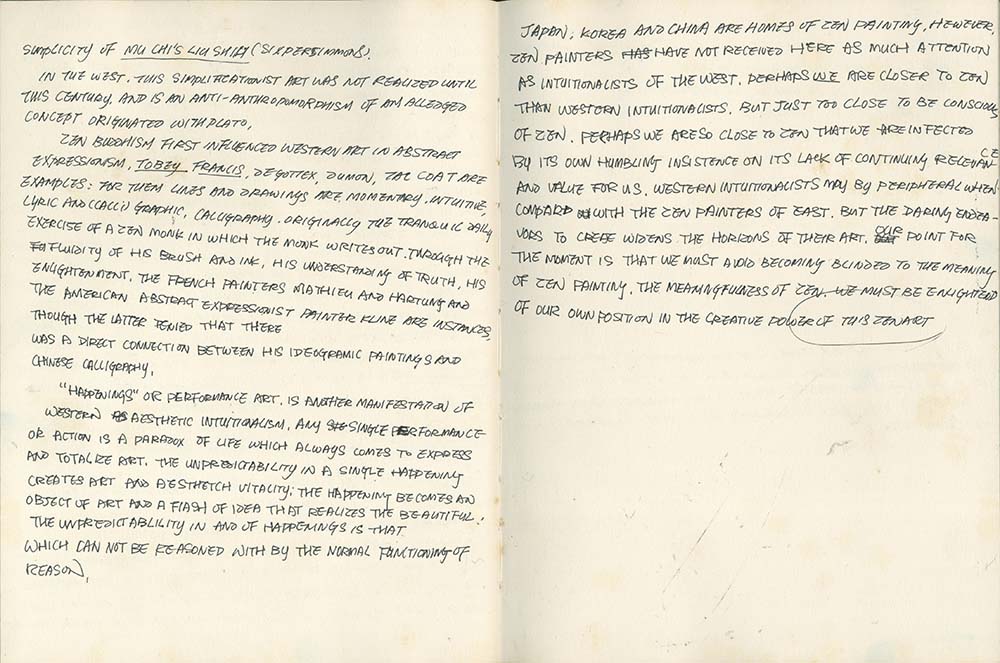 SIMPLICITY OF MU CHI'S LIU SHIH (SIX PERSIMMONS).
IN THE WEST. THIS SIMPLIFICATIONIST ART WAS NOT REALIZED UNTIL
THIS CENTURY, AND IS AN ANTI-ANTHROPOMORPHISM OF AN ALLEDGED
CONCEPT ORIGINATED WITH PLATO,
ZEN BUDDHISM FIRST INFLUENCED WESTERN ART IN ABSTRACT
EXPRESSIONISM, TOBEY FRANCIS, DEGOTTEX, DUMON, TAL COAT ARE
EXAMPLES: FOR THEM LINES AND DRAWINGS ARE MOMENTARY. INTUITIVE,
LYRIC AND CALLI GRAPHIC, CALLIGRAPHY. ORIGINALLY THE TRANQUIL DAILY
EXERCISE OF A ZEN MONK IN WHICH THE MONK WRITES OUT. THROUGH THE
FLUIDITY OF HIS BRUSH AND INK, HIS UNDERSTANDING OF TRUTH, HIS
ENLIGHTENMENT. THE FRENCH PAINTERS MATHIEU AND HARTUNG AND
THE AMERICAN ABSTRACT EXPRESSIONIST PAINTER KLINE ARE INSTANCES,
THOUGH THE LATTER DENIED THAT THERE
WAS A DIRECT CONNECTION BETWEEN HIS IDEOGRAMIC PAINTINGS AND
CHINESE CALLIGRAPHY.
"HAPPENINGS" OR PERFORMANCE ART. IS ANOTHER MANIFESTATION OF
WESTERN AESTHETIC INTUITIONALISM. ANY SINGLE PERFORMANCE
OR ACTION IS A PARADOX OF LIFE WHICH ALWAYS COMES TO EXPRESS
AND TOTALIZE ART. THE UNPREDICTABILITY IN A SINGLE HAPPENING
CREATES ART AND AESTHETCH VITALITY; THE HAPPENING BECOMES AN
OBJECT OF ART AND A FLASH OF IDEA THAT REALIZES THE BEAUTIFUL.
THE UNPREDICTABLILITY IN AND OF HAPPENINGS IS THAT
WHICH CAN NOT BE REASONED WITH BY THE NORMAL FUNCTIONING OF
REASON,
JAPAN, KOREA AND CHINA ARE HOMES OF ZEN PAINTING, HOWEVER,
ZEN PAINTERS HAS HAVE NOT RECEIVED HERE AS MUCH ATTENTION
AS INTUITIONALISTS OF THE WEST. PERHAPS WE ARE CLOSER TO ZEN
THAN WESTERN INTUITIONALISTS. BUT JUST TOO CLOSE TO BE CONSCIOUS
OF ZEN. PERHAPS WE ARE SO CLOSE TO ZEN THAT WE ARE INFECTED
BY ITS OWN HUMBLING INSISTENCE ON ITS LACK OF CONTINUING RELEVANCE
AND VALUE FOR US. WESTERN INTUITIONALISTS MAY BY PERIPHERAL WHEN
COMPARD WITH THE ZEN PAINTERS OF EAST. BUT THE DARING ENDEA-
VORS TO CREATE WIDENS THE HORIZONS OF THEIR ART. OUR POINT FOR
THE MOMENT IS THAT WE MUST AVOID BECOMING BLINDED TO THE MEANING
OF ZEN PAINTING, THE MEANINGFULNESS OF ZEN. WE MUST BE ENLIGHTENED
OF OUR OWN POSITION IN THE CREATIVE POWER OF THIS ZEN ART